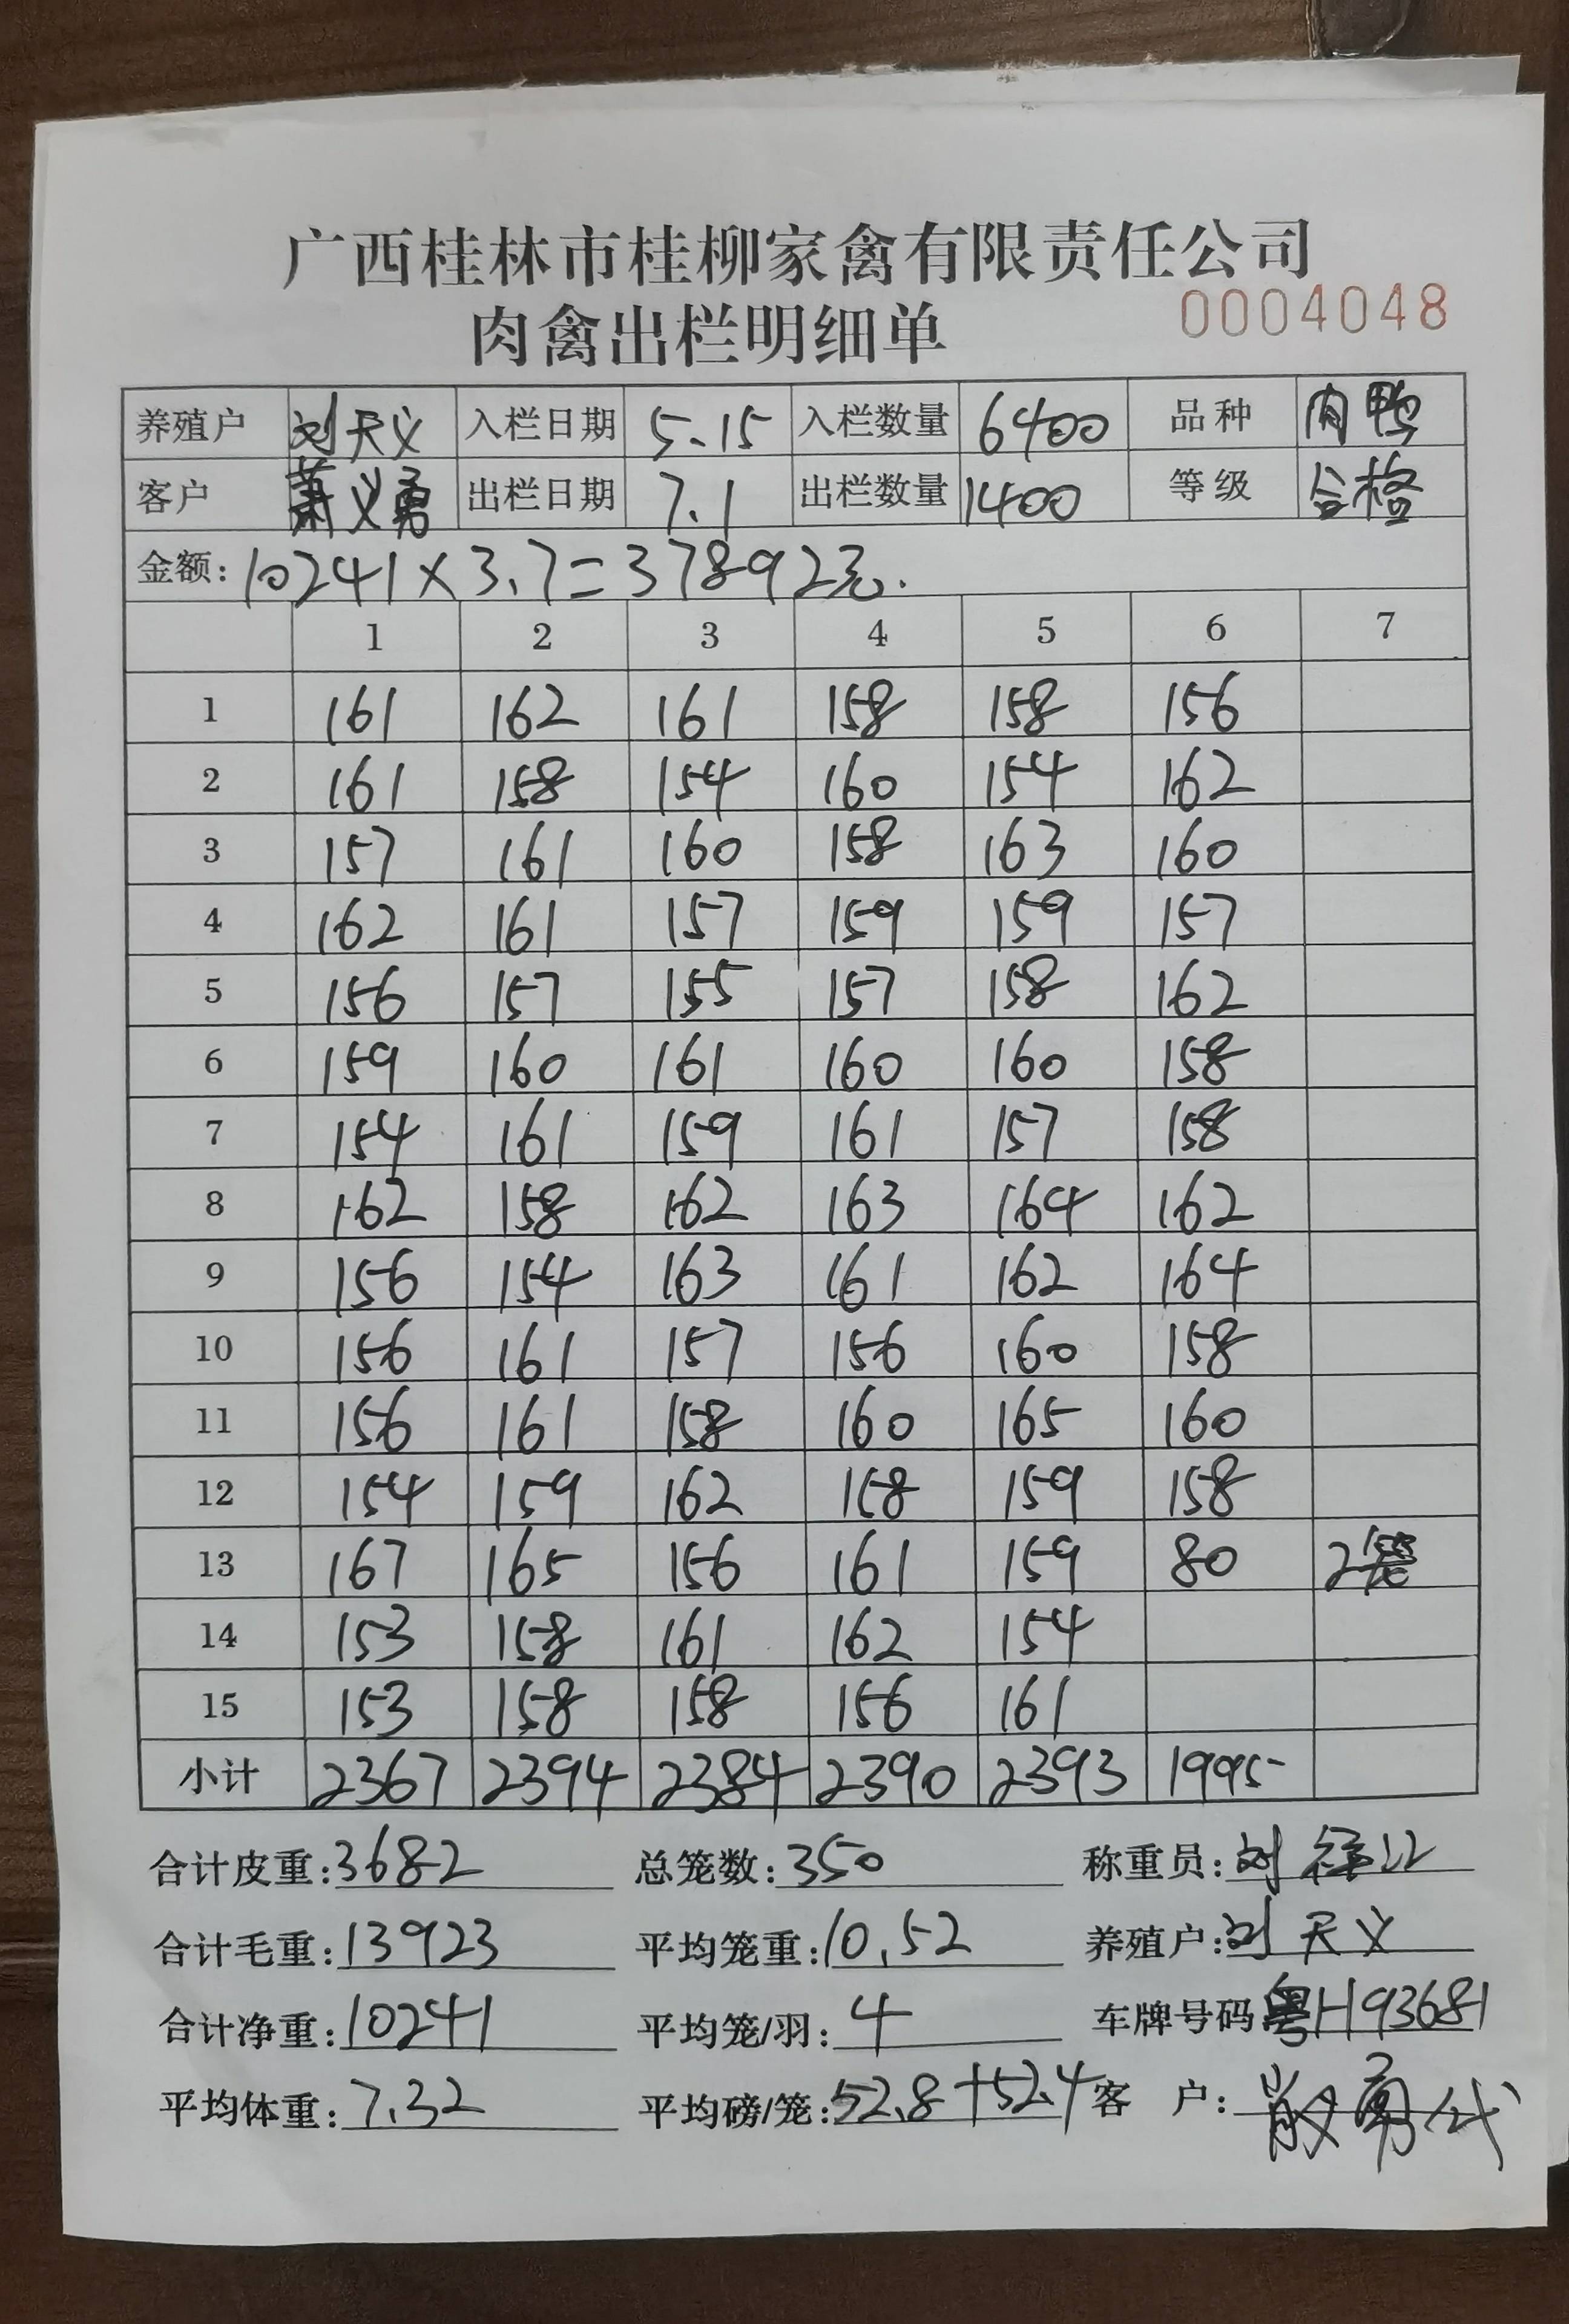 广西桂林市桂柳家禽有限责任公司
肉禽出栏明细单 0004048
养殖户 刘天义 入栏日期 5.15 入栏数量 6400 品种 肉鸭
客户 萧义勇 出栏日期 7.1 出栏数量 1400 等级 合格
金额: 10241×3.7=37892元.
1 2 3 4 5 6 7
1 161 162 161 158 158 156
2 161 158 154 160 154 162
3 157 161 160 158 163 160
4 162 161 157 159 159 157
5 156 157 155 157 158 162
6 159 160 161 160 160 158
7 154 161 159 161 157 158
8 162 158 162 163 164 162
9 156 154 163 161 162 164
10 156 161 157 156 160 158
11 156 161 158 160 165 160
12 154 159 162 158 159 158
13 167 165 156 161 159 80 2
14 153 158 161 162 154
15 153 158 158 156 161
小计 2367 2394 2384 2390 2393 1995
合计皮重: 3682 总笼数: 350 称重员: 刘
合计毛重: 13923 平均笼重: 10.52 养殖户: 刘天义
合计净重: 10241 平均笼/羽: 4 车牌号码 粤H93681
平均体重: 7.32 平均磅/笼: 52.8+52.4 客 户: 勇代